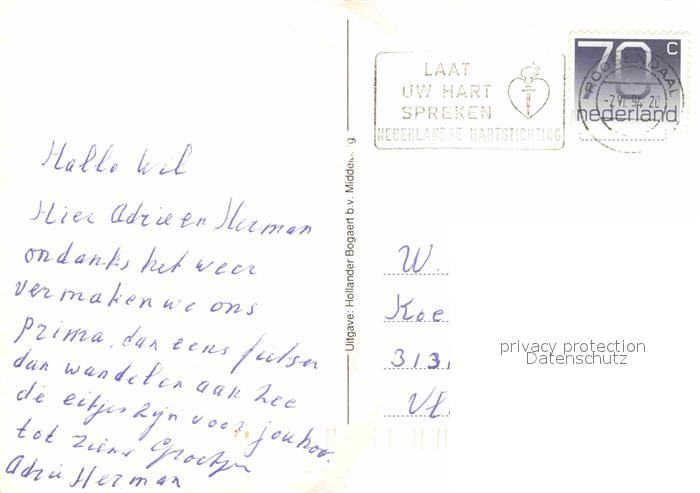 Hallo Wil
Hier Adrie en Herman
ondanks het weer
vermaken we ons
prima, dan eens fietsen
dan wandelen aan zee
de eitjes zijn voor jou hoor.
tot ziens Groetjes
Adrie Herman
Uitgave: Hollander Bogaert b.v. Middelburg
LAAT
UW HART
SPREKEN
NEDERLANDSE HARTSTICHTING
70 c
nederland
ROOSENDAAL
-7.VI.94.20
W.
Koe
313
Vl
privacy protection
Datenschutz